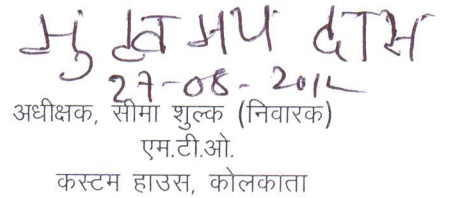 सुखमय दास
27-08-2012
अधीक्षक, सीमा शुल्क (निवारक)
एम.टी.ओ.
कस्टम हाउस, कोलकाता